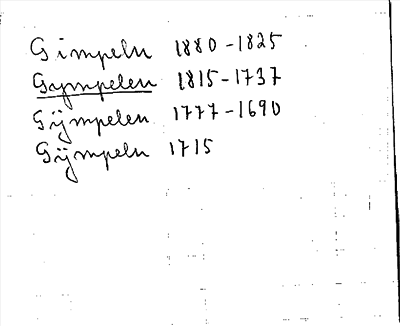 Gimpeln 1880-1825
Gympelen 1815-1737
Gÿmpelen 1777-1690
Gÿmpeln 1715